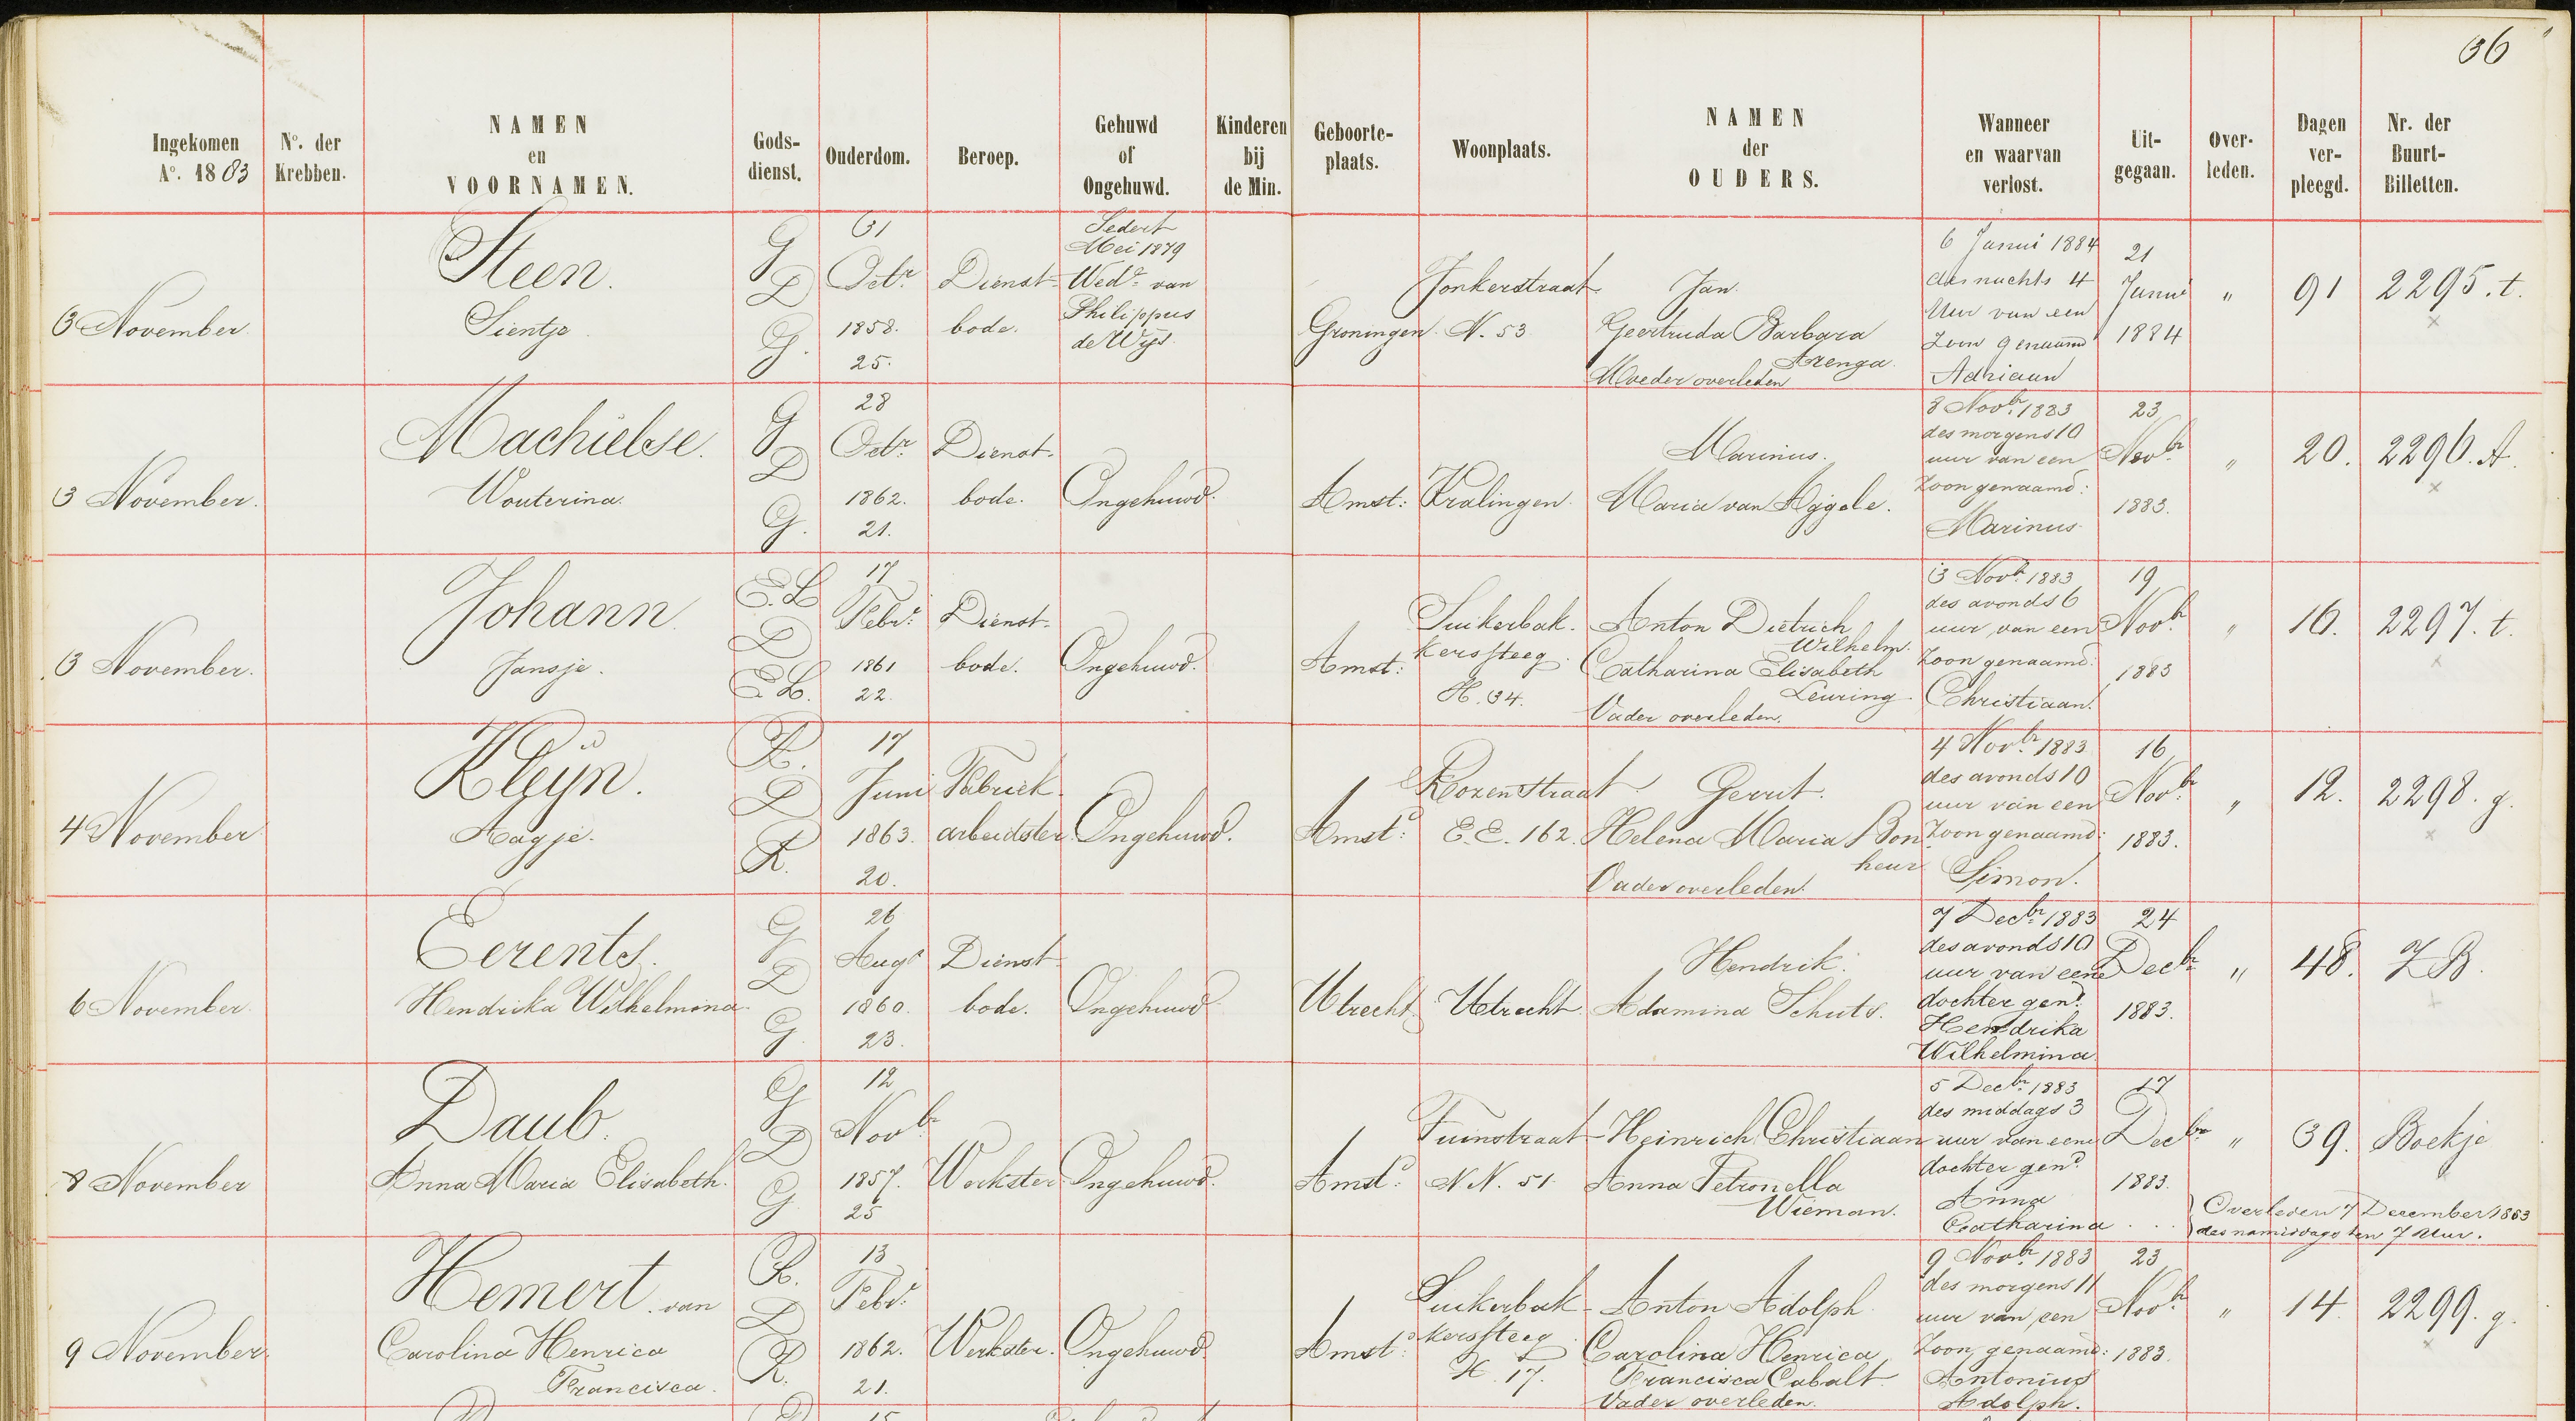 36
Ingekomen
Aº. 1883
Nº. der
Krebben.
NAMEN
en
VOORNAMEN.
Gods-
dienst.
Ouderdom.
Beroep.
Gehuwd
of
Ongehuwd.
Kinderen
bij
de Min.
Geboorte-
plaats.
Woonplaats.
NAMEN
der
OUDERS.
Wanneer
en waarvan
verlost.
Uit-
gegaan.
Over-
leden.
Dagen
ver-
pleegd.
Nr. der
Buurt-
Billetten.
3 November
Steen.
Sientje
G
D
G.
31
Octr.
1858.
25.
Dienst-
bode.
Sedert
Mei 1879
Wede. van
Philippus
de Wijs
Groningen.
Jonkerstraat
N. 53
Jan.
Geertruda Barbara
Arenga.
Moeder overleden
6 Janui 1884
des nachts 4
Uur van een
Zoon genaamd
Adriaan
21
Janui
1884
"
91
2295. t.
3 November.
Machielse.
Wouterina.
G
D
G.
28
Octr.
1862.
21.
Dienst-
bode.
Ongehuwd.
Amst:
Kralingen.
Marinus.
8 Novbr. 1883
des morgens 10
uur van een
Zoon genaamd:
Marinus
23
Novbr
1883.
"
20.
2296. A.
3 November.
Johann
Jansje.
E.L
D
E.L.
17
Febr.
1861
22.
Dienst-
bode.
Ongehuwd.
Amst:
Suikerbak-
kerssteeg.
H. 34.
Anton Dietrich
Wilhelm.
Catharina Elisabeth
Leuring
Vader overleden.
13 Novbr. 1883
des avonds 6
uur van een
Zoon genaamd:
Christiaan.
19
Novbr.
1883
"
16.
2297. t.
4 November
Kleijn.
Aagje.
R.
D
R.
17
Juni
1863.
20.
Fabriek
arbeidster
Ongehuwd.
Amstd:
Rozenstraat
E.E. 162.
Gerrit.
Helena Maria Bon-
heur
Vader overleden.
4 Novbr. 1883
des avonds 10
uur van een
Zoon genaamd:
Simon.
16
Novbr.
1883.
"
12.
2298. g.
6 November
Eerents.
Hendrika Wilhelmina.
G
D
G
26
Augs
1860.
23.
Dienst
bode.
Ongehuwd
Utrecht
Utrecht
Hendrik.
Adamina Schuts.
7 Decbr. 1883
des avonds 10
uur van eene
dochter gend.
Hendrika
Wilhelmina
24
Decbr
1883.
"
48.
Z B.
8 November
Daub.
Anna Maria Elisabeth.
G
D
G
12
Novbr
1857.
25
Werkster
Ongehuwd.
Amstd:
Tuinstraat
N.N. 51.
Heinrich Christiaan
Anna Petronella
Wieman.
5 Decbr. 1883
des middags 3
uur van eene
dochter gend.
Anna
Catharina
17
Decbr
1883.
"
39.
Boekje
Overleden 7 December 1883
des namiddags ten 7 Uur.
9 November
Hemert. van
Carolina Henrica
Francisca.
R.
D
R.
13
Febr.
1862.
21.
Werkster.
Ongehuwd
Amstd:
Suikerbak-
kerssteeg
H. 17.
Anton Adolph
Carolina Henrica
Francisca Cabalt.
Vader overleden.
9 Novbr. 1883
des morgens 11
uur van een
Zoon genaamd:
Antonius
Adolph.
23
Novbr.
1883.
"
14
2299. g.
15